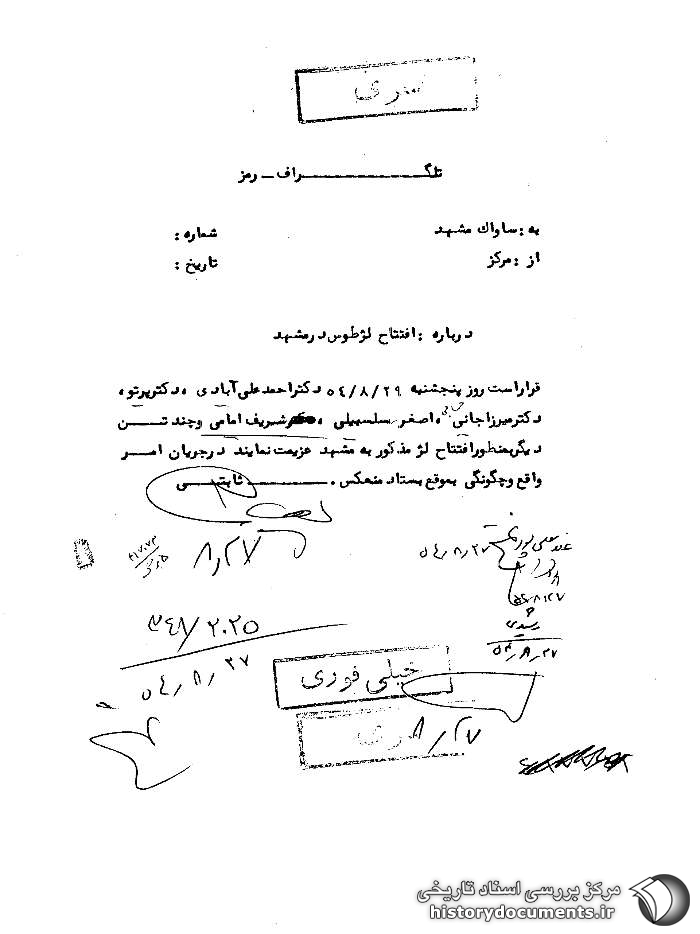 سری
تلگـــــراف ـ رمز
به : ساواك مشهد
شماره :
از : مركز
تاریخ :
درباره : افتتاح لژ طوس در مشهد
قرار است روز پنجشنبه ۵۴/۸/۲۹ دكتر احمد علی آبادی ، دكتر پرتو ،
دكتر میرزا جانی ، اصغر سلسبیلی ، شریف امامی و چند تـــن
دیگر بمنظور افتتاح لژ مذكور به مشهد عزیمت نمایند در جریان امـــر
واقع و چگونگی بموقع بستاد منعكس . ـــــــــــ ثابتـــی
۸٫۲۷
۵۴٫۸٫۲۷
۳۴۸/۲۰۲۵
۵۴٫۸٫۲۷
رشیدی
۵۴٫۸٫۲۷
خیلی فوری
سری
۸٫۲۷
مرکز بررسی اسناد تاریخی
historydocuments.ir